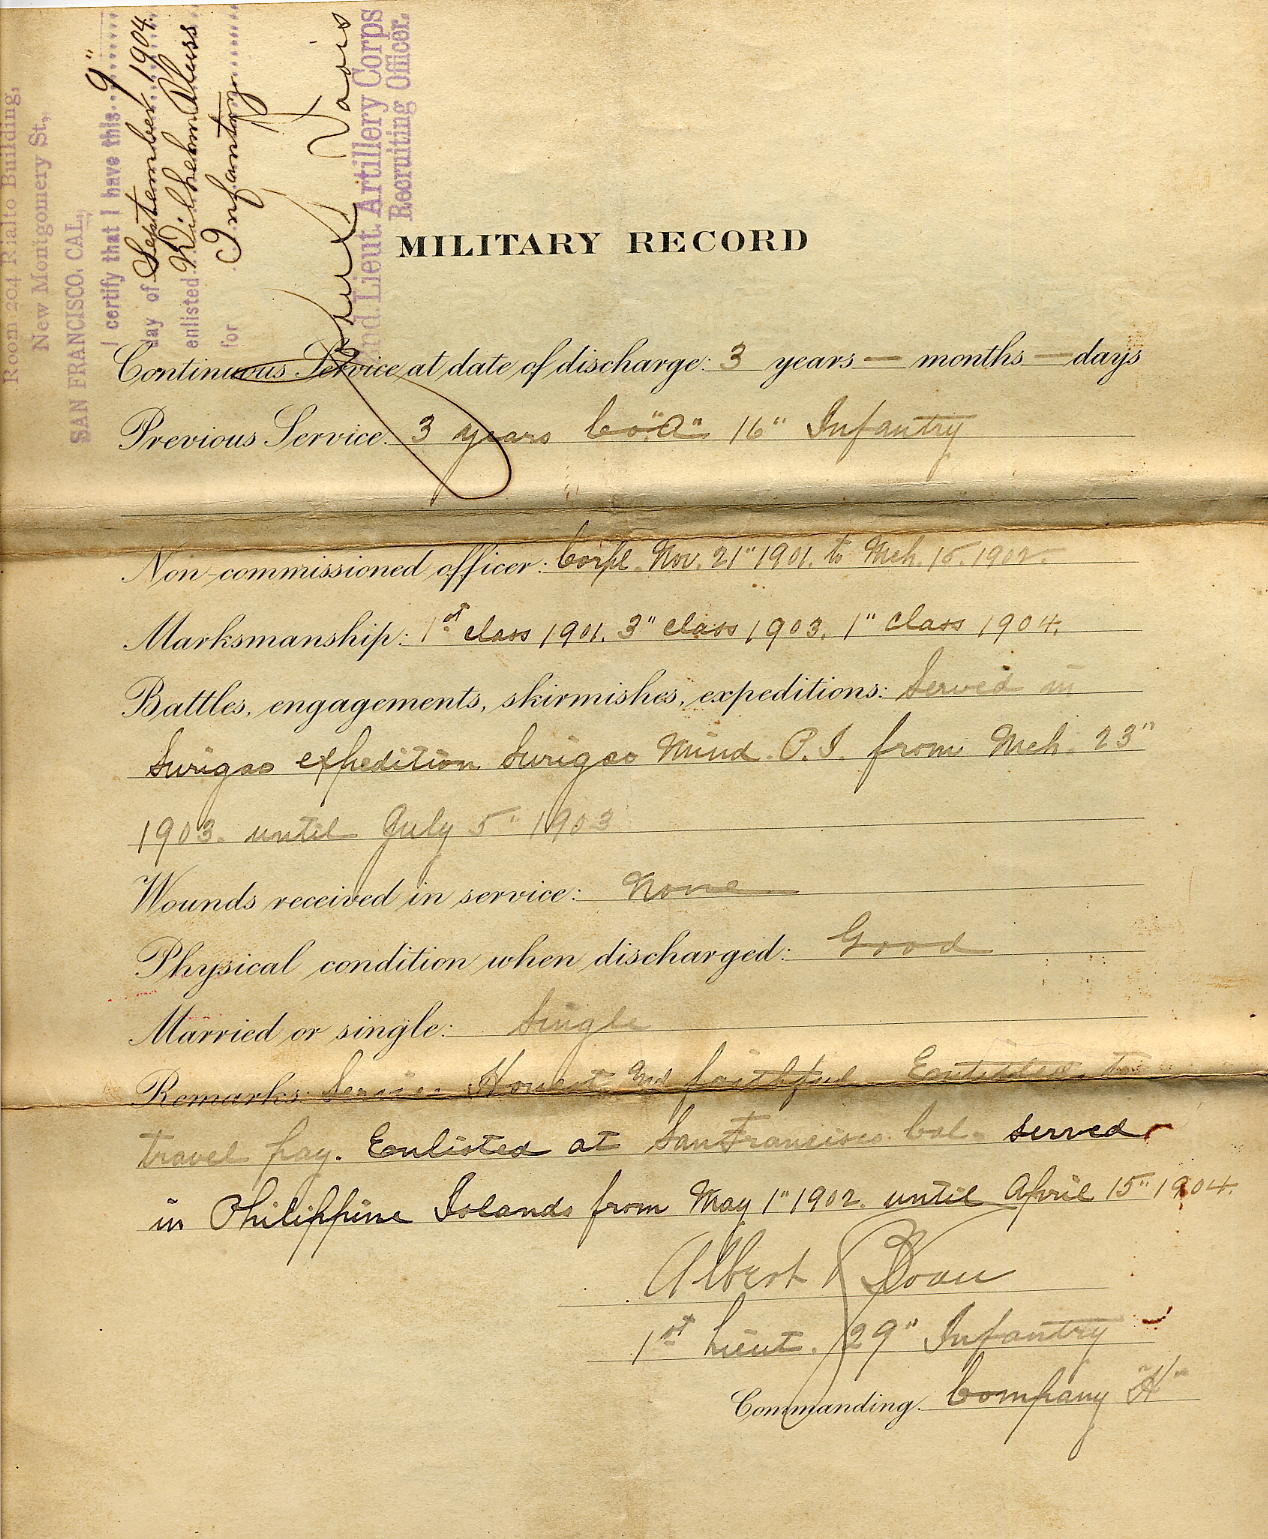 Room 204 Rialto Building,
New Montgomery St.,
SAN FRANCISCO, CAL.,
I certify that I have this 9"
day of September 1904
enlisted Wilhelm
for Infantry
2nd Lieut Artillery Corps
Recruiting Officer.
MILITARY RECORD
Continuous Service at date of discharge: 3 years — months — days
Previous Service: 3 years Co "A" 16" Infantry
Non-commissioned officer: Corpl. Nov. 21" 1901. to Mch. 1902.
Marksmanship: 1st class 1901. 3" class 1903. 1" class 1904.
Battles, engagements, skirmishes, expeditions: Served in
Surigao expedition Surigao Mind. P.I. from Mch. 23"
1903. until July 5" 1903
Wounds received in service: None
Physical condition when discharged: Good
Married or single: Single
Remarks: Service Honest and faithful. Entitled to
travel pay. Enlisted at San Francisco Cal. served
in Philippine Islands from May 1" 1902. until April 15" 1904.
Albert
1st Lieut. 29" Infantry
Commanding Company "H"